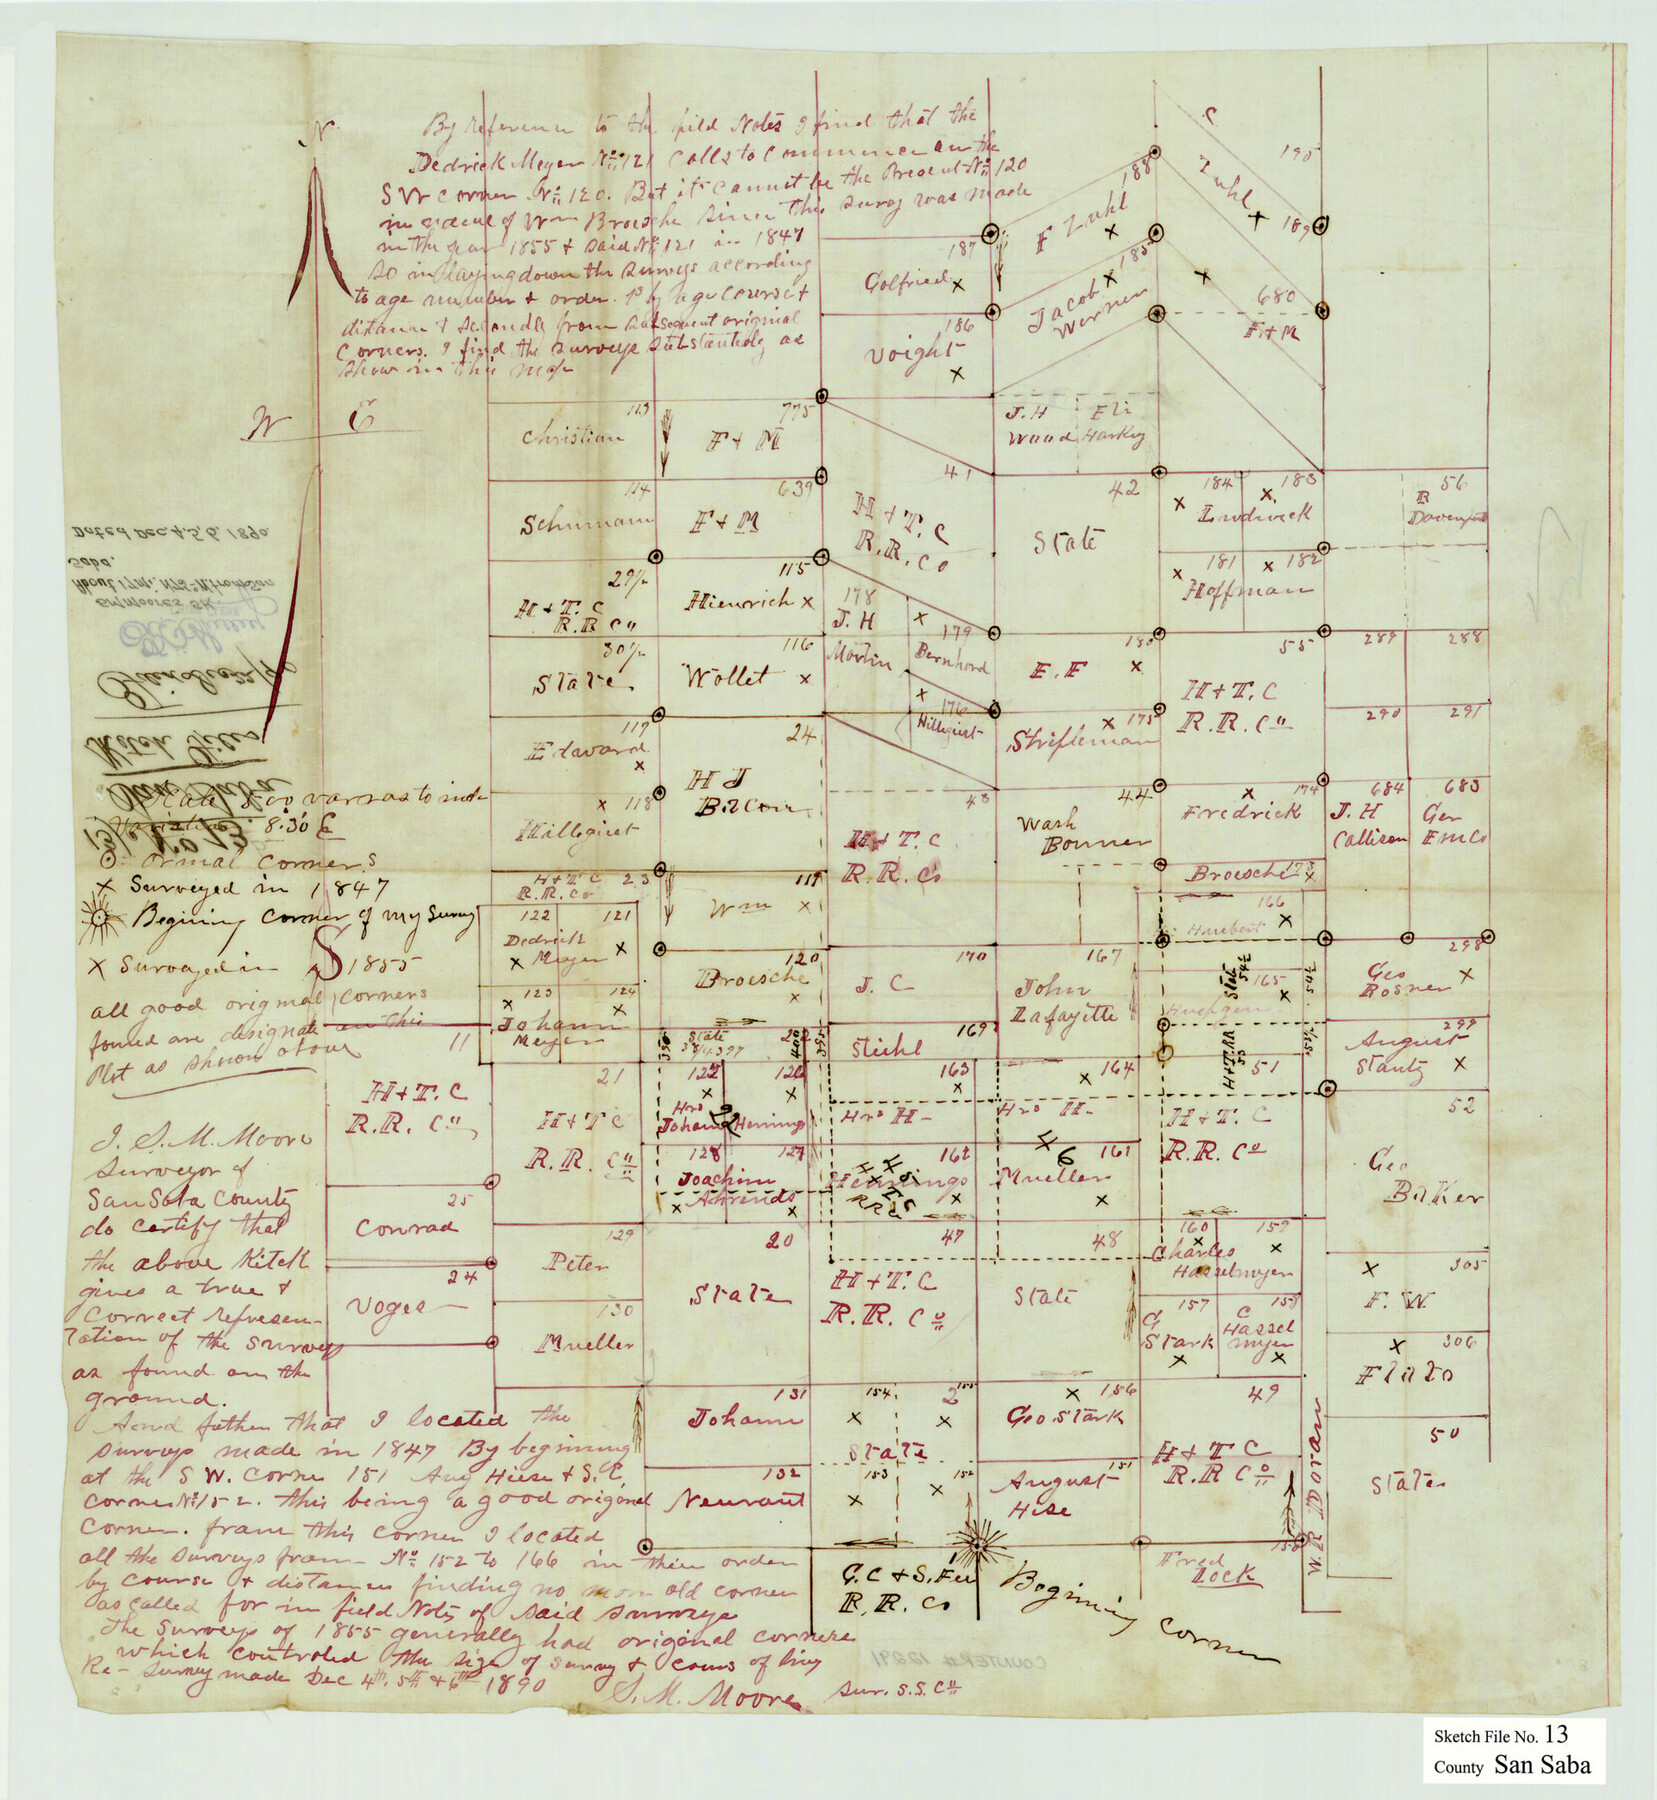 N.
By reference to the field Notes I find that the
Dedrick Meyer No 121 calls to commence on the
S W corner No 120. But it cannot be the Present No 120
in name of Wm Broesche since this survey was made
in the year 1855 & said No 121 in 1847
So in laying down the surveys according
to age number & order. 1st by age course &
distance & secondly from subsequent original
corners. I find the surveys substantialy as
show in this map
W
E
S
Dated Dec. 4, 5, 6, 1890.
Scale 800 varas to inch
Variation 8.30 E
ormal corners
X Surveyed in 1847
Begining corner of my survey
X Surveyed in 1855
all good original corners
found are designate on this
Plot as shown above
I. S. M. Moore
Surveyor of
San Saba County
do certify that
the above sketch
gives a true &
correct represen-
tation of the surveys
as found on the
ground.
And futher that I located the
surveys made in 1847 By begining
at the S W. Corner 151 Aug Hiese & S. E.
Corner No 152. this being a good original
corner. from this corner I located
all the surveys from No 152 to 166 in their order
by course & distances finding no more old corner
as called for in field Notes of said surveys
The Surveys of 1855 generally had original corners
which controled the size of survey & cours of liny
Re-survey made Dec 4th. 5th & 6th 1890
S. M. Moore Sur. S. S. Co
187
Golfried X
186
Voight X
188
F Zuhl X
185
Jacob X
Werner
C
Zuhl X
190
189
680
F + M
113
Christian
775
F + M
J. H
Wood
Eli
Harkey
114
Schumann
639
F + M
41
H + T. C
R. R. Co
42
State
184 183
Ludwick
181 182
Hoffman
56
R
Davenport
29 1/2
H + T. C
R. R Co
115
Hienrich X
178
J. H
Martin
179
Bernhard
176
Hillquist
30 1/2
State
116
Wollet X
180
E. F X
175
Strifleman
55
H + T. C
R. R. Co
289 288
290 291
117
Edward
X
24
H J
Bacon
X 118
Hillquist
43
H + T. C
R. R. Co
44
Wash
Bonner
174
Fredrick
684
J. H
Callison
683
Ger
EmCo
H + T C 23
R. R. Co
119
Wm X
Broesche 173
166
Huebert
122 121
Dedrick
Meyer
120
Broesche
X
170
J. C
167
John
Lafayette
165
State
54 1/2
298
Geo
Bosner X
123 124
Johann
Meyer
State
22
400
395
350
169
Stiehl
299
August
Stautz X
11
H + T. C
R. R. Co
21
H + T C
R. R. Co
122 126
Hrs
Johann Hennings
163
Hrs H-
164
Hrs H-
H+T. RR
53
51
H + T. C
R. R. Co
52
Geo
Baker
128 127
Joachim
Ahrends
162
Hennings
161
Mueller
46
25
Conrad
24
Voges
129
Peter
130
Mueller
20
State
47
H + T. C
R. R. Co
48
State
160 159
Charles
Hasselmeyer
157
G
Stark
158
C
Hassel
myer
305
F. W.
306
Flato
131
Johann
132
Neurant
154 2 155
State
153 152
X 156
Geo Stark
151
August
Hise
49
H + T C
R. R Co
50
State
150
Fred
Lock
W. B. McLean
G. C & S. Fe
R. R. Co
1
Begining corner
COUNTER # 12291
Sketch File No. 13
County San Saba